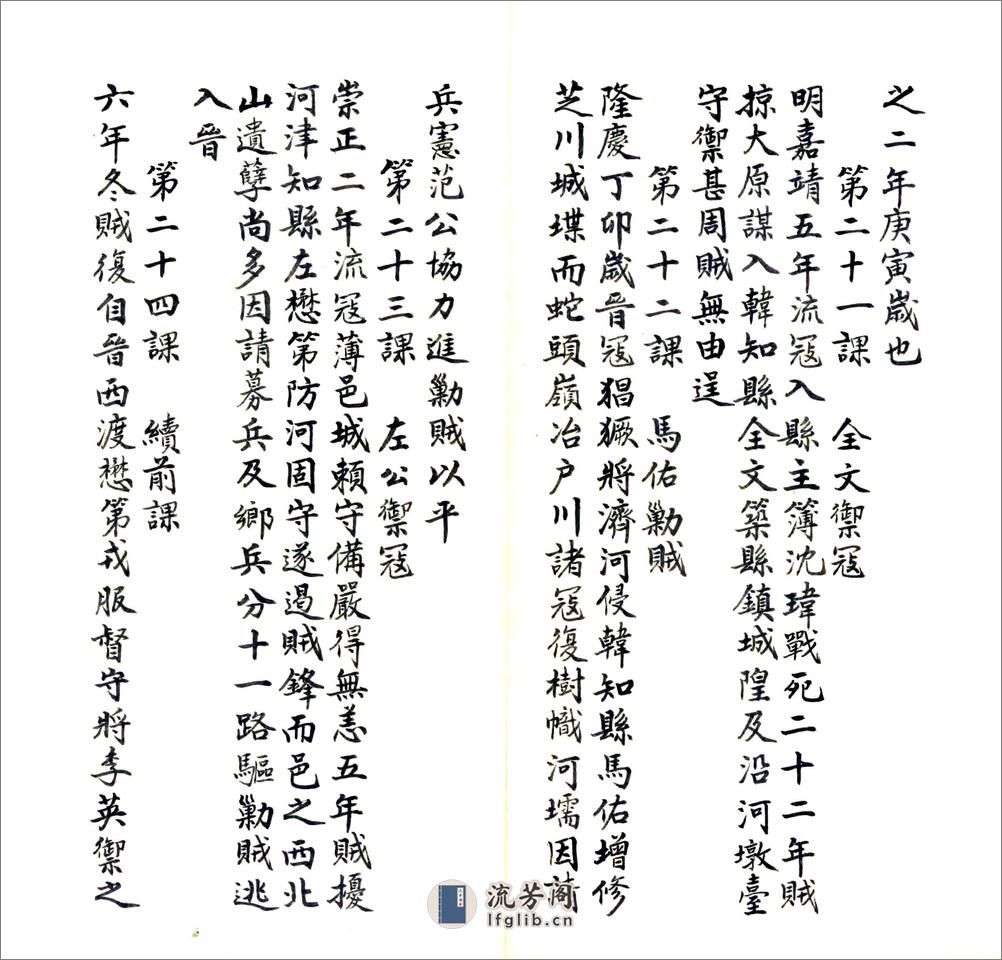 之二年庚寅歲也
第二十一課　全文禦冦
明嘉靖五年流冦入縣主簿沈瑋戰死二十二年賊
掠大原謀入韓知縣全文築縣鎮城隍及沿河墩臺
守禦甚周賊無由逞
第二十二課　馬佑勦賊
隆慶丁卯歲晉冦猖獗將濟河侵韓知縣馬佑增修
芝川城堞而蛇頭嶺冶户川諸冦復樹幟河壖因請
兵憲范公協力進勦賊以平
第二十三課　左公禦冦
崇正二年流冦薄邑城賴守備嚴得無恙五年賊擾
河津知縣左懋第防河固守遂遏賊鋒而邑之西北
山遺孽尚多因請募兵及鄉兵分十一路驅勦賊逃
入晉
第二十四課　續前課
六年冬賊復自晉西渡懋第戎服督守將李英禦之
流芳阁
lfglib.cn